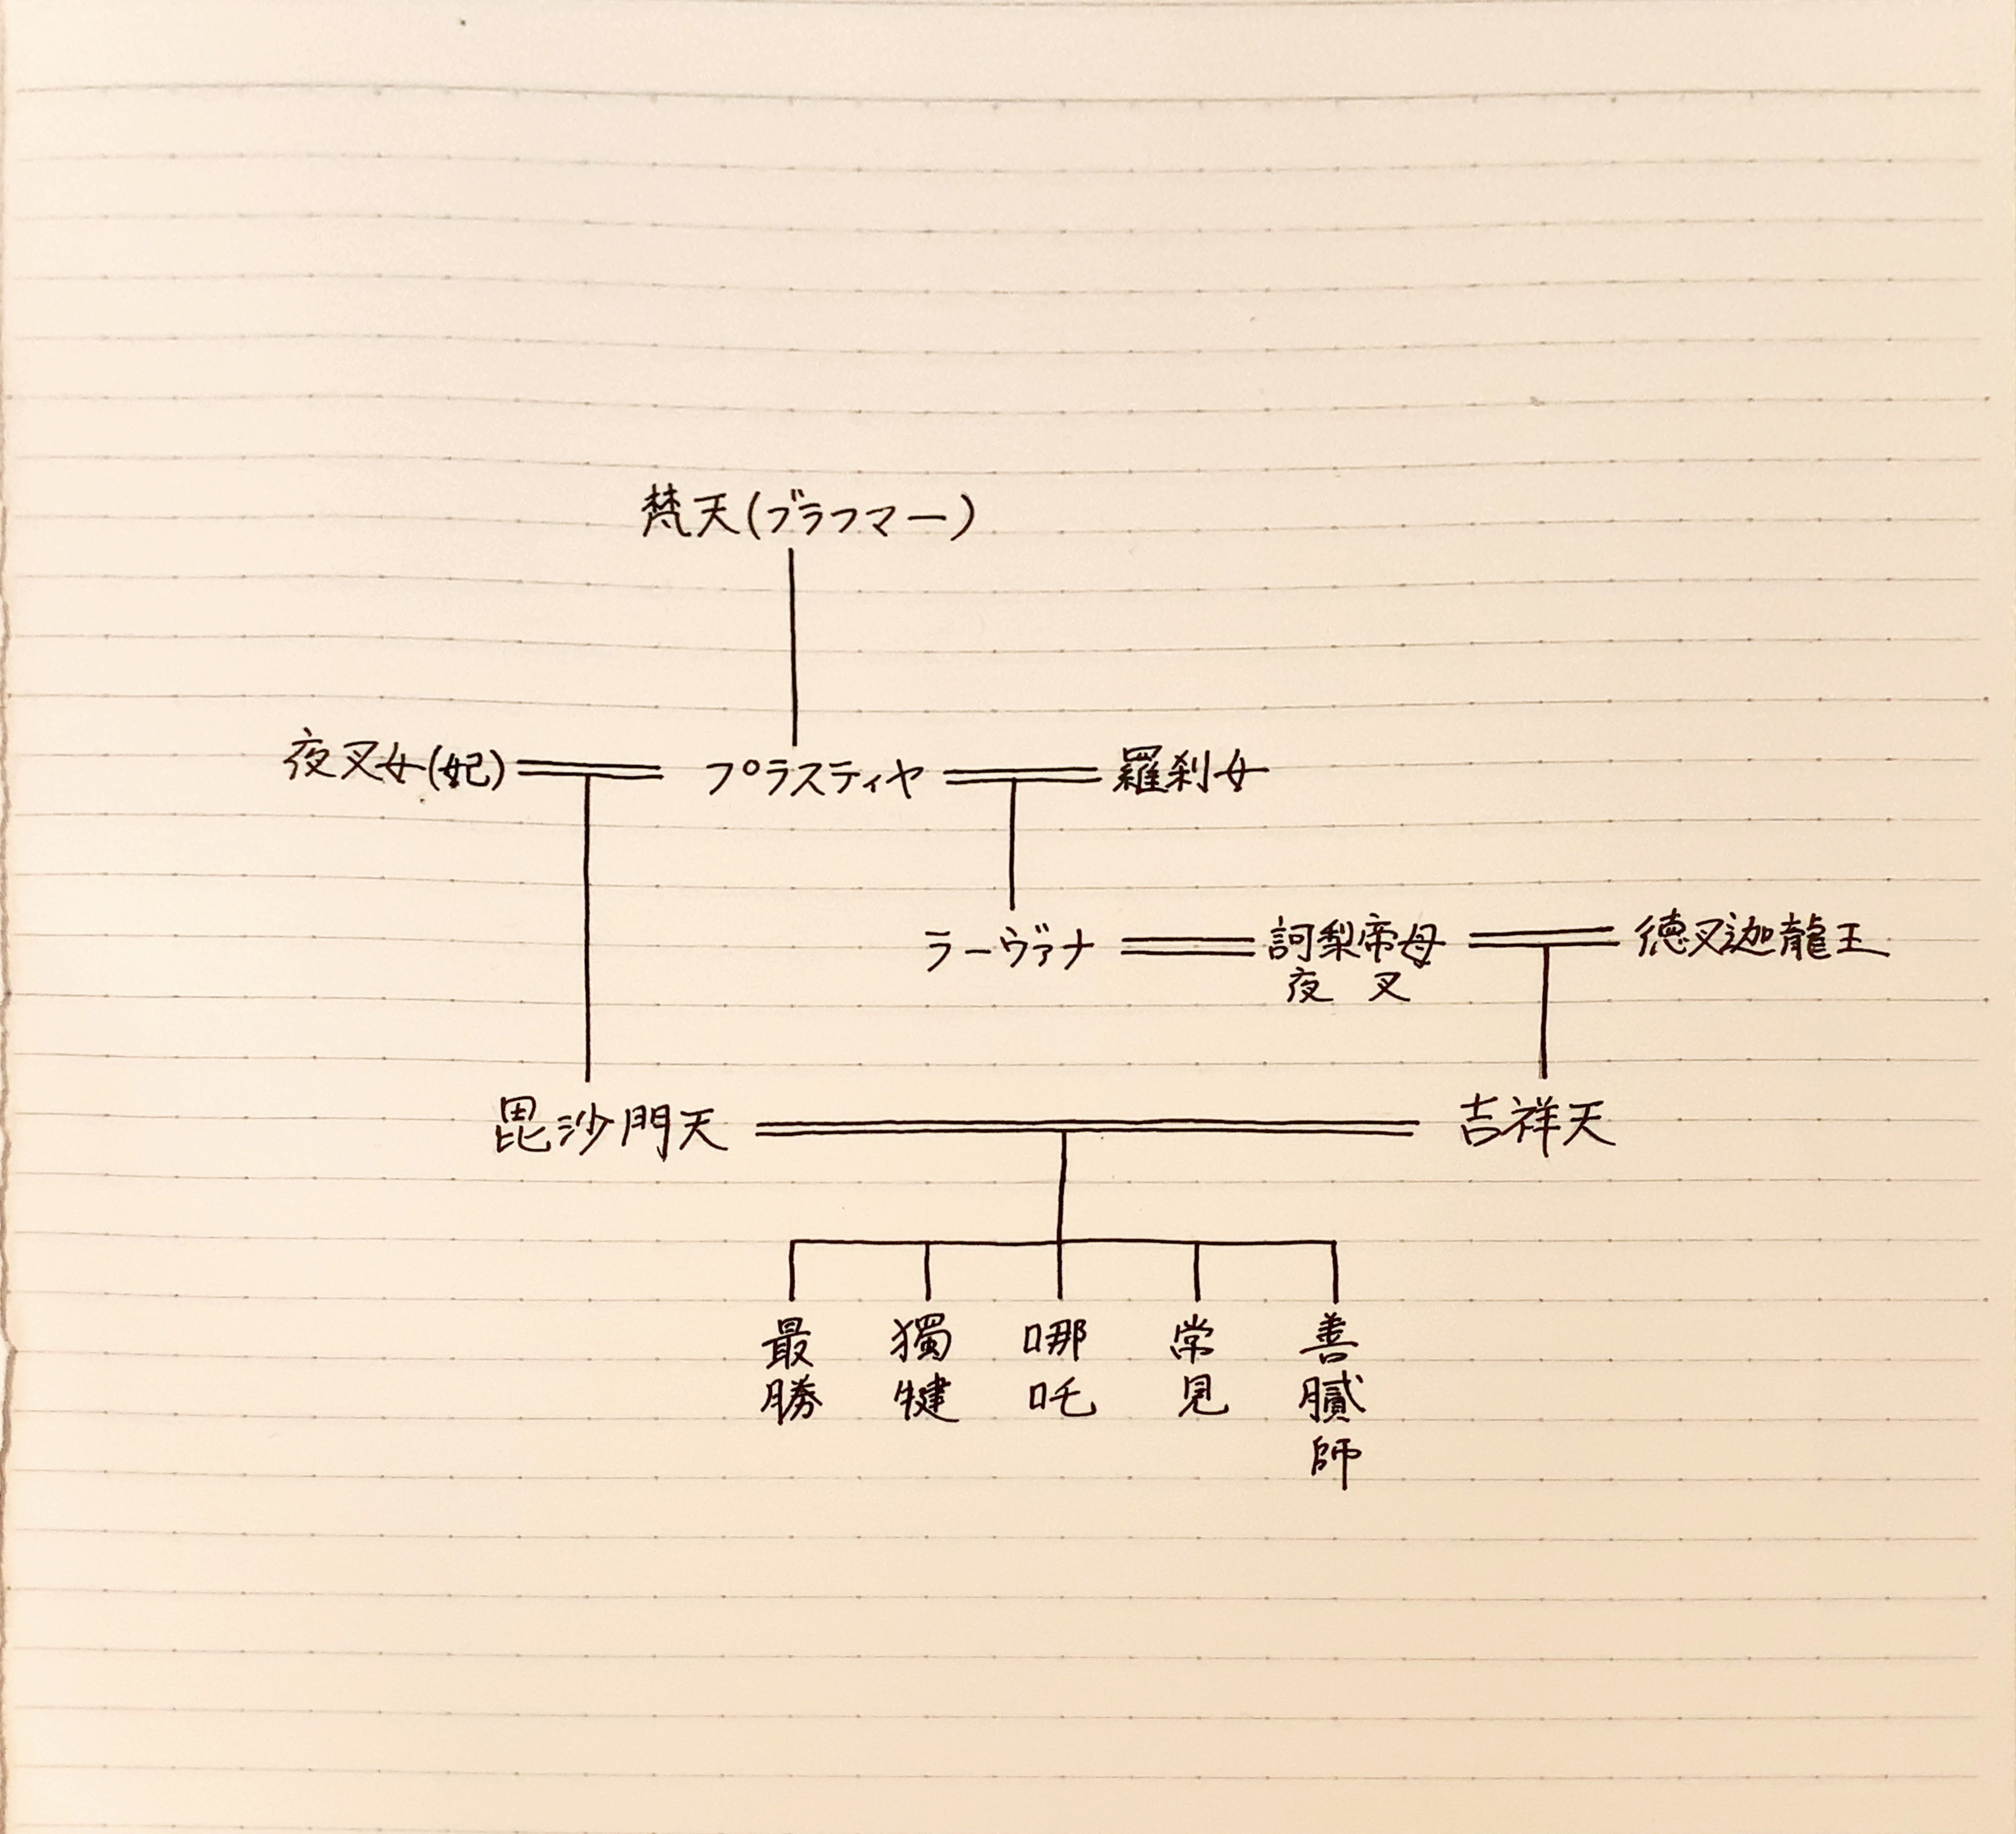 梵天(ブラフマー)
夜叉女(妃) プラスティヤ 羅刹女
ラーヴァナ 訶梨帝母 徳叉迦龍王
夜叉
毘沙門天 吉祥天
最勝 獨犍 哪吒 常見 善膩師